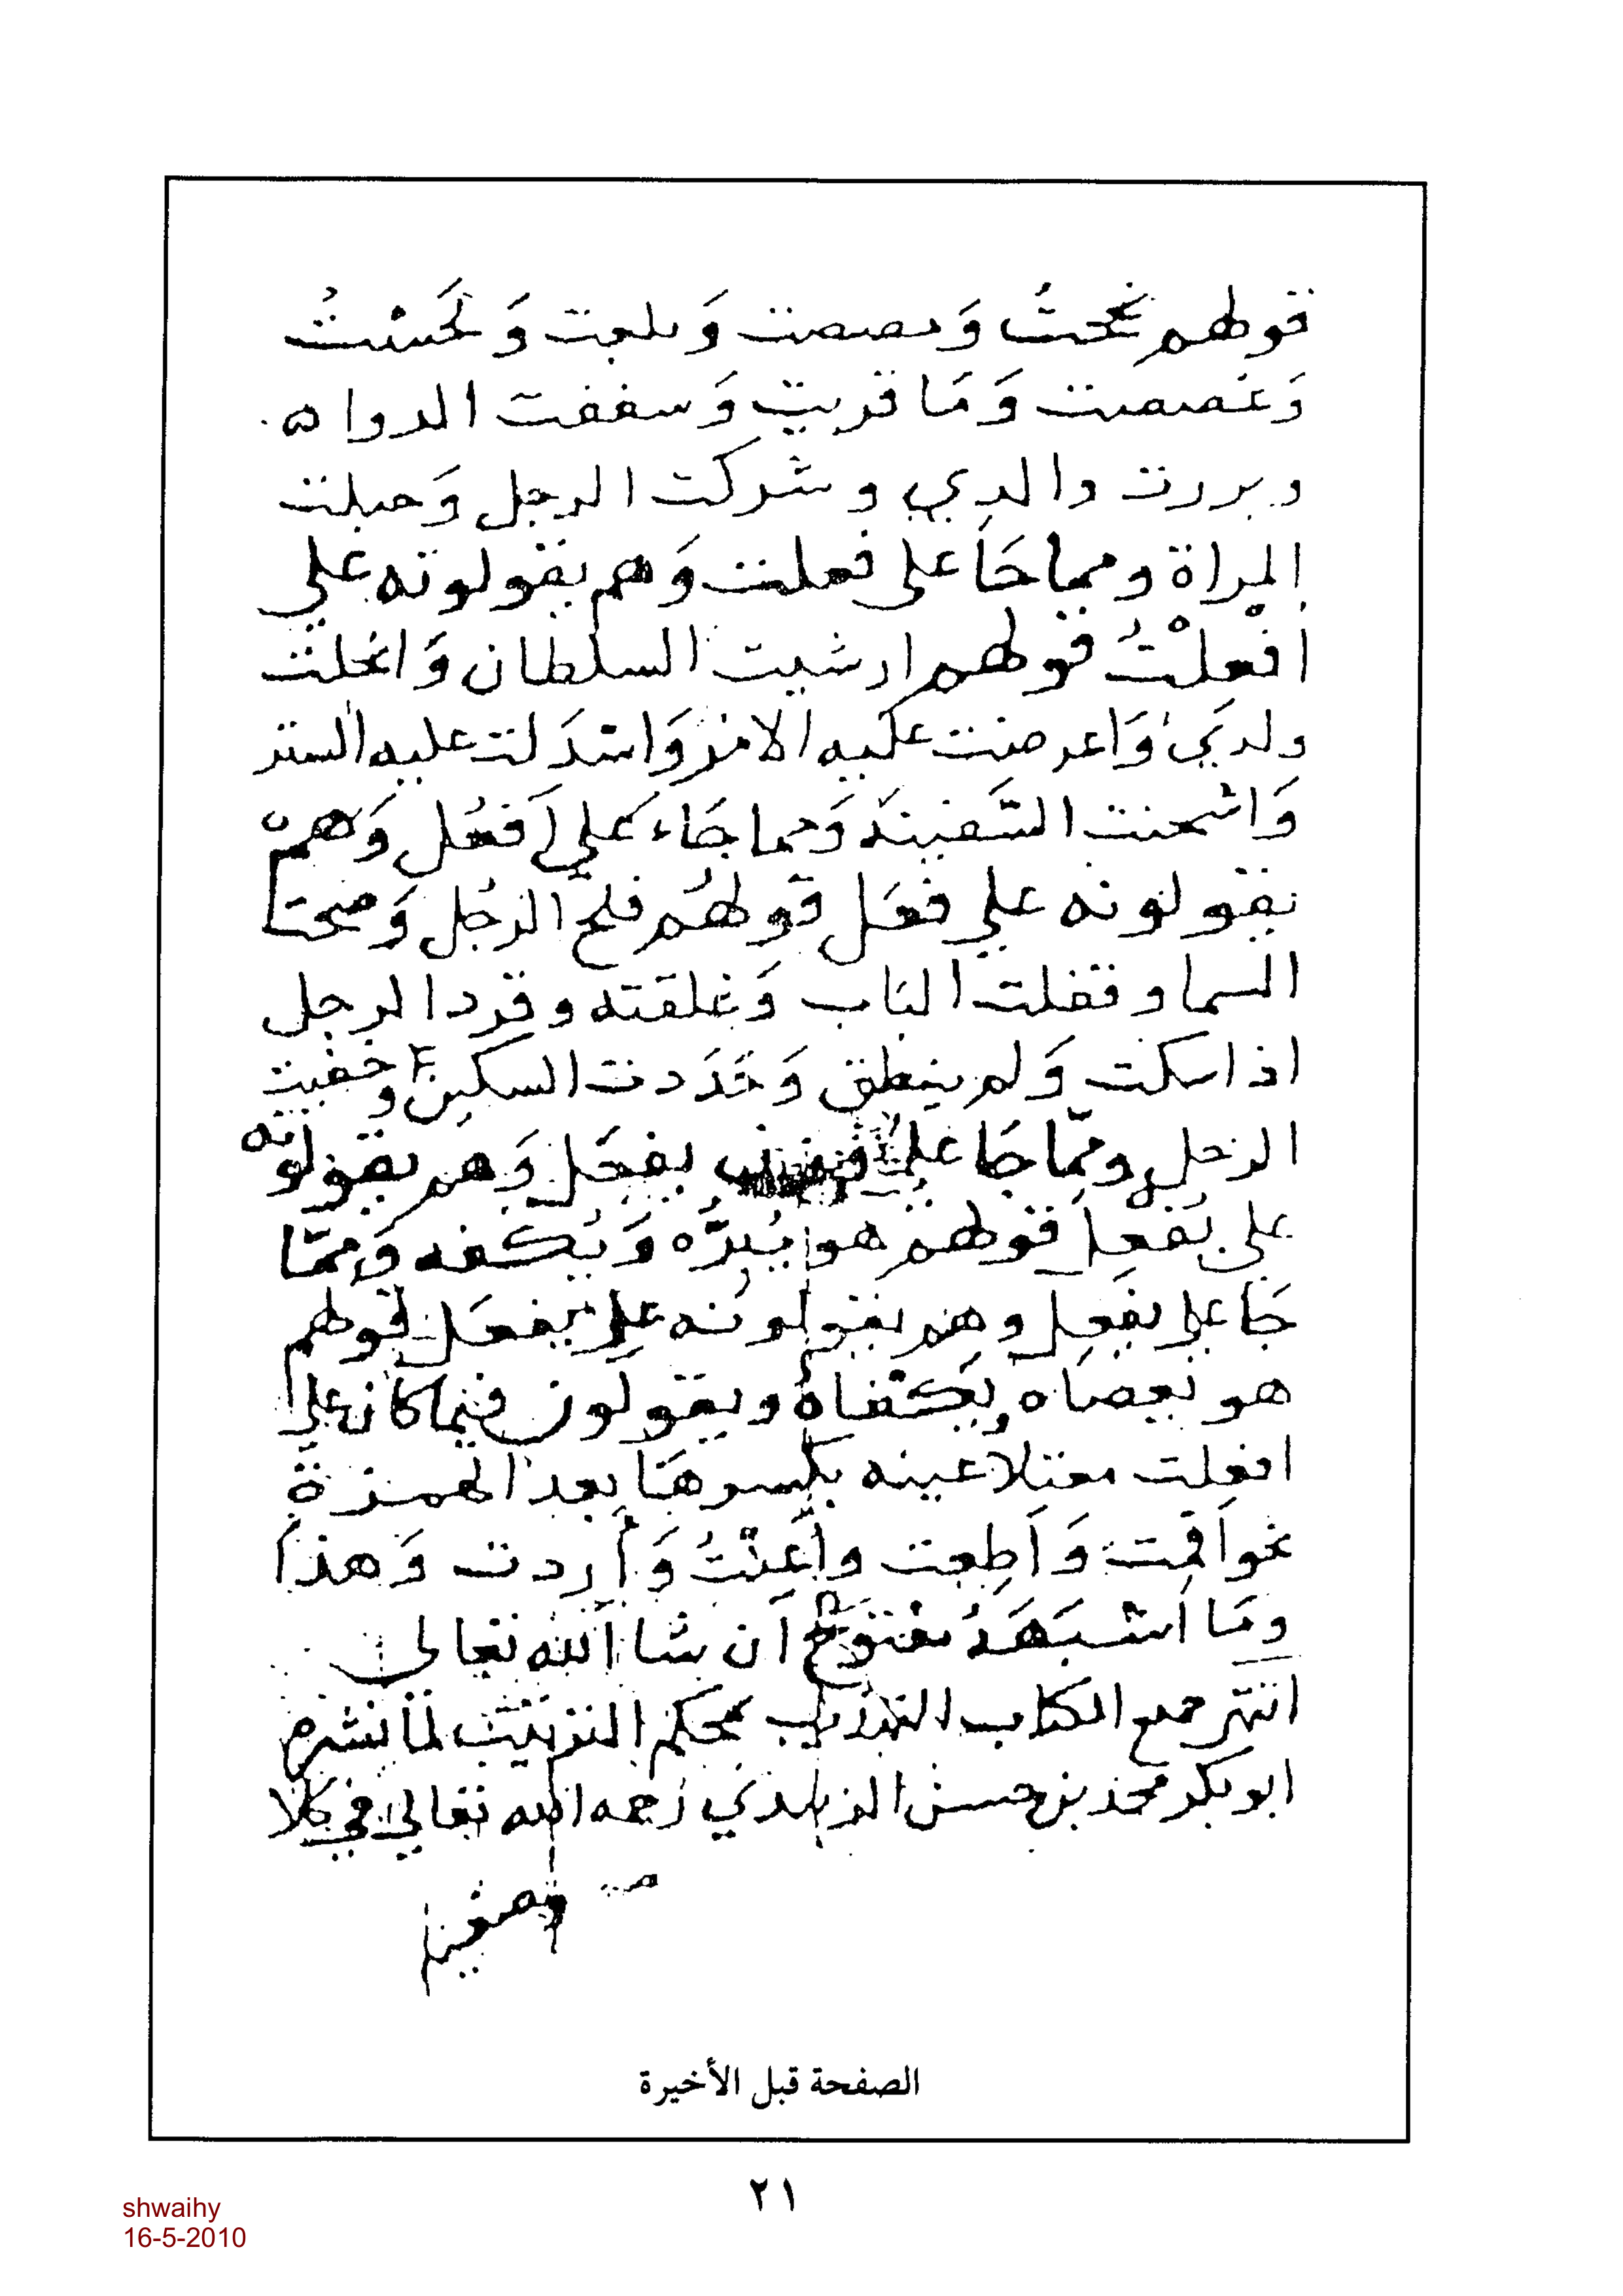 قولهم بححتُ وَمصصت وَبلعت وَلحَسْتُ
وَغصصت وَمَا قربت وَسففت الدوا ه
وبررت والدي وشركت الرجل وَحبلت
المراة ومما جَا على فعلت وَهم يقولونه على
افْعلْتُ قولهم ارشيت السلطان وَانحلت
ولدي وَاعرضت عليه الامر وَاسْدَلت عليه الستر
وَاشحنت السَّفينة وَمما جَاء عَلى اَفعُل وَهمْ
يقولونه علي فعَل قولهُم فلح الرجُل وَصحت
السما وقفلت البَاب وَغلقته وقرد الرجل
اذا سكت وَلم ينطق وَحَدَدت السكين وخفيت
الرجل وممّا جَا على يفعَل وَهم يقولونه
على يُفعِل قولهم هو يُبرُّه وَيُكفه وَممَّا
جَا على يفعِل وهم يقولونه على يفعَل قولهم
هو يعصَاه ويكفاهُ ويقولون فيما كان على
افعلت معتلا عينه بكسرهَا بعد الهمزة
نحو اَقمت وَاَطعت واَعنْتُ وَأردت وَهذا
ومَا اَشبَهَهُ مفتوح ان شا الله تعالى
انتهى جميع الكتاب التهذيب بمحكم الترتيب لما نشره
ابو بكر محمد بن حسن الزبيدي رحمه الله تعالى في كلا
الصفحة قبل الأخيرة
٢١
shwaihy
16-5-2010